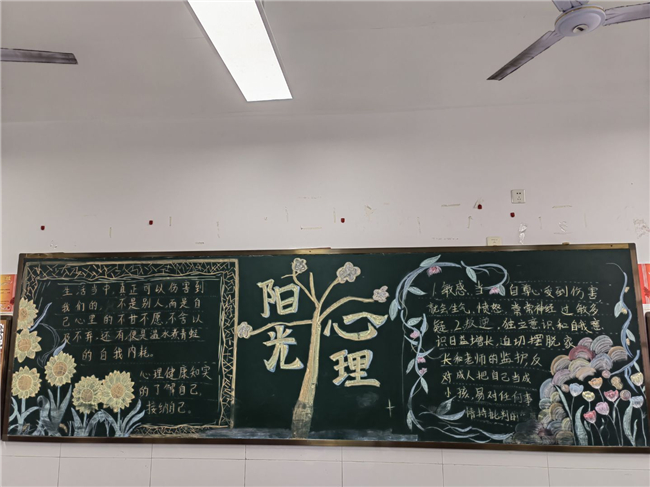 生活当中,真正可以伤害到
我们的,不是别人,而是自
己心里的不甘不愿,不舍以
及不弃,还有便是温水煮青蛙
的自我内耗。
心理健康知实
的了解自己,
接纳自己。
阳光
心理
1.敏感,当自尊心受到伤害
就会生气,愤怒,常常神经过敏多
疑。2.叛逆,独立意识和自我意
识日益增长,迫切摆脱家
长和老师的监护反
对成人把自己当成
小孩,易对任何事
情持批判的